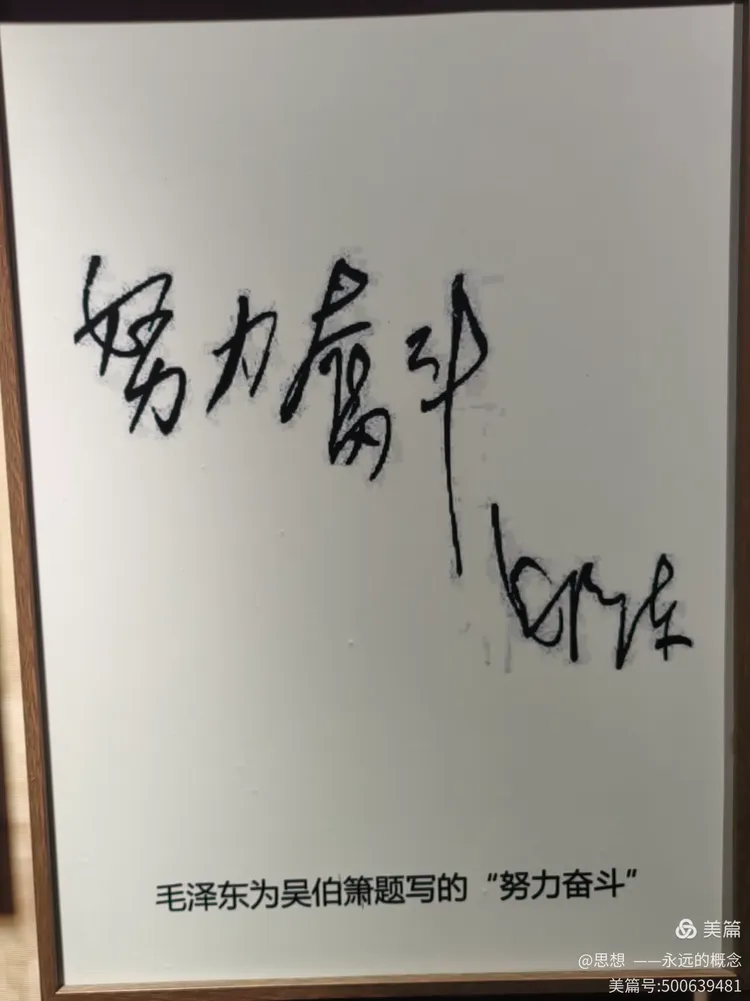 努力奋斗
毛泽东
毛泽东为吴伯箫题写的“努力奋斗”
美篇
@思想 ——永远的概念
美篇号:500639481